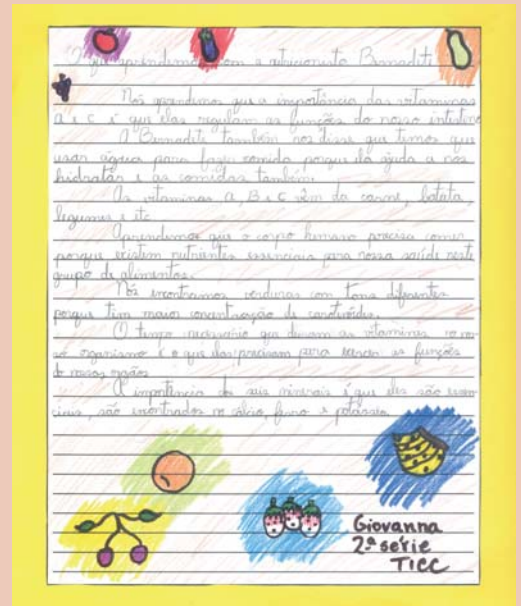 O que aprendemos com a nutricionista Bernadete
Nós aprendemos que a importância das vitaminas
A e C é que elas regulam as funções do nosso intestino
A Bernadete também nos disse que temos que
usar água para fazer comida porque ela ajuda a nos
hidratar e as comidas também.
As vitaminas A, B e C vêm da carne, batata,
legumes e etc.
Aprendemos que o corpo humano precisa comer
porque existem nutrientes essenciais para nossa saúde neste
grupo de alimentos.
Nós encontramos verduras com tons diferentes
porque tem maior concentração de carotenóides.
O tempo necessário que duram as vitaminas no nos-
so organismo é o que elas precisam para exercer as funções
do nosso orgãos
A importância dos sais minerais é que eles são essen-
ciais, são encontrados no cálcio, ferro e potássio.
Giovanna
2ª série
TICC